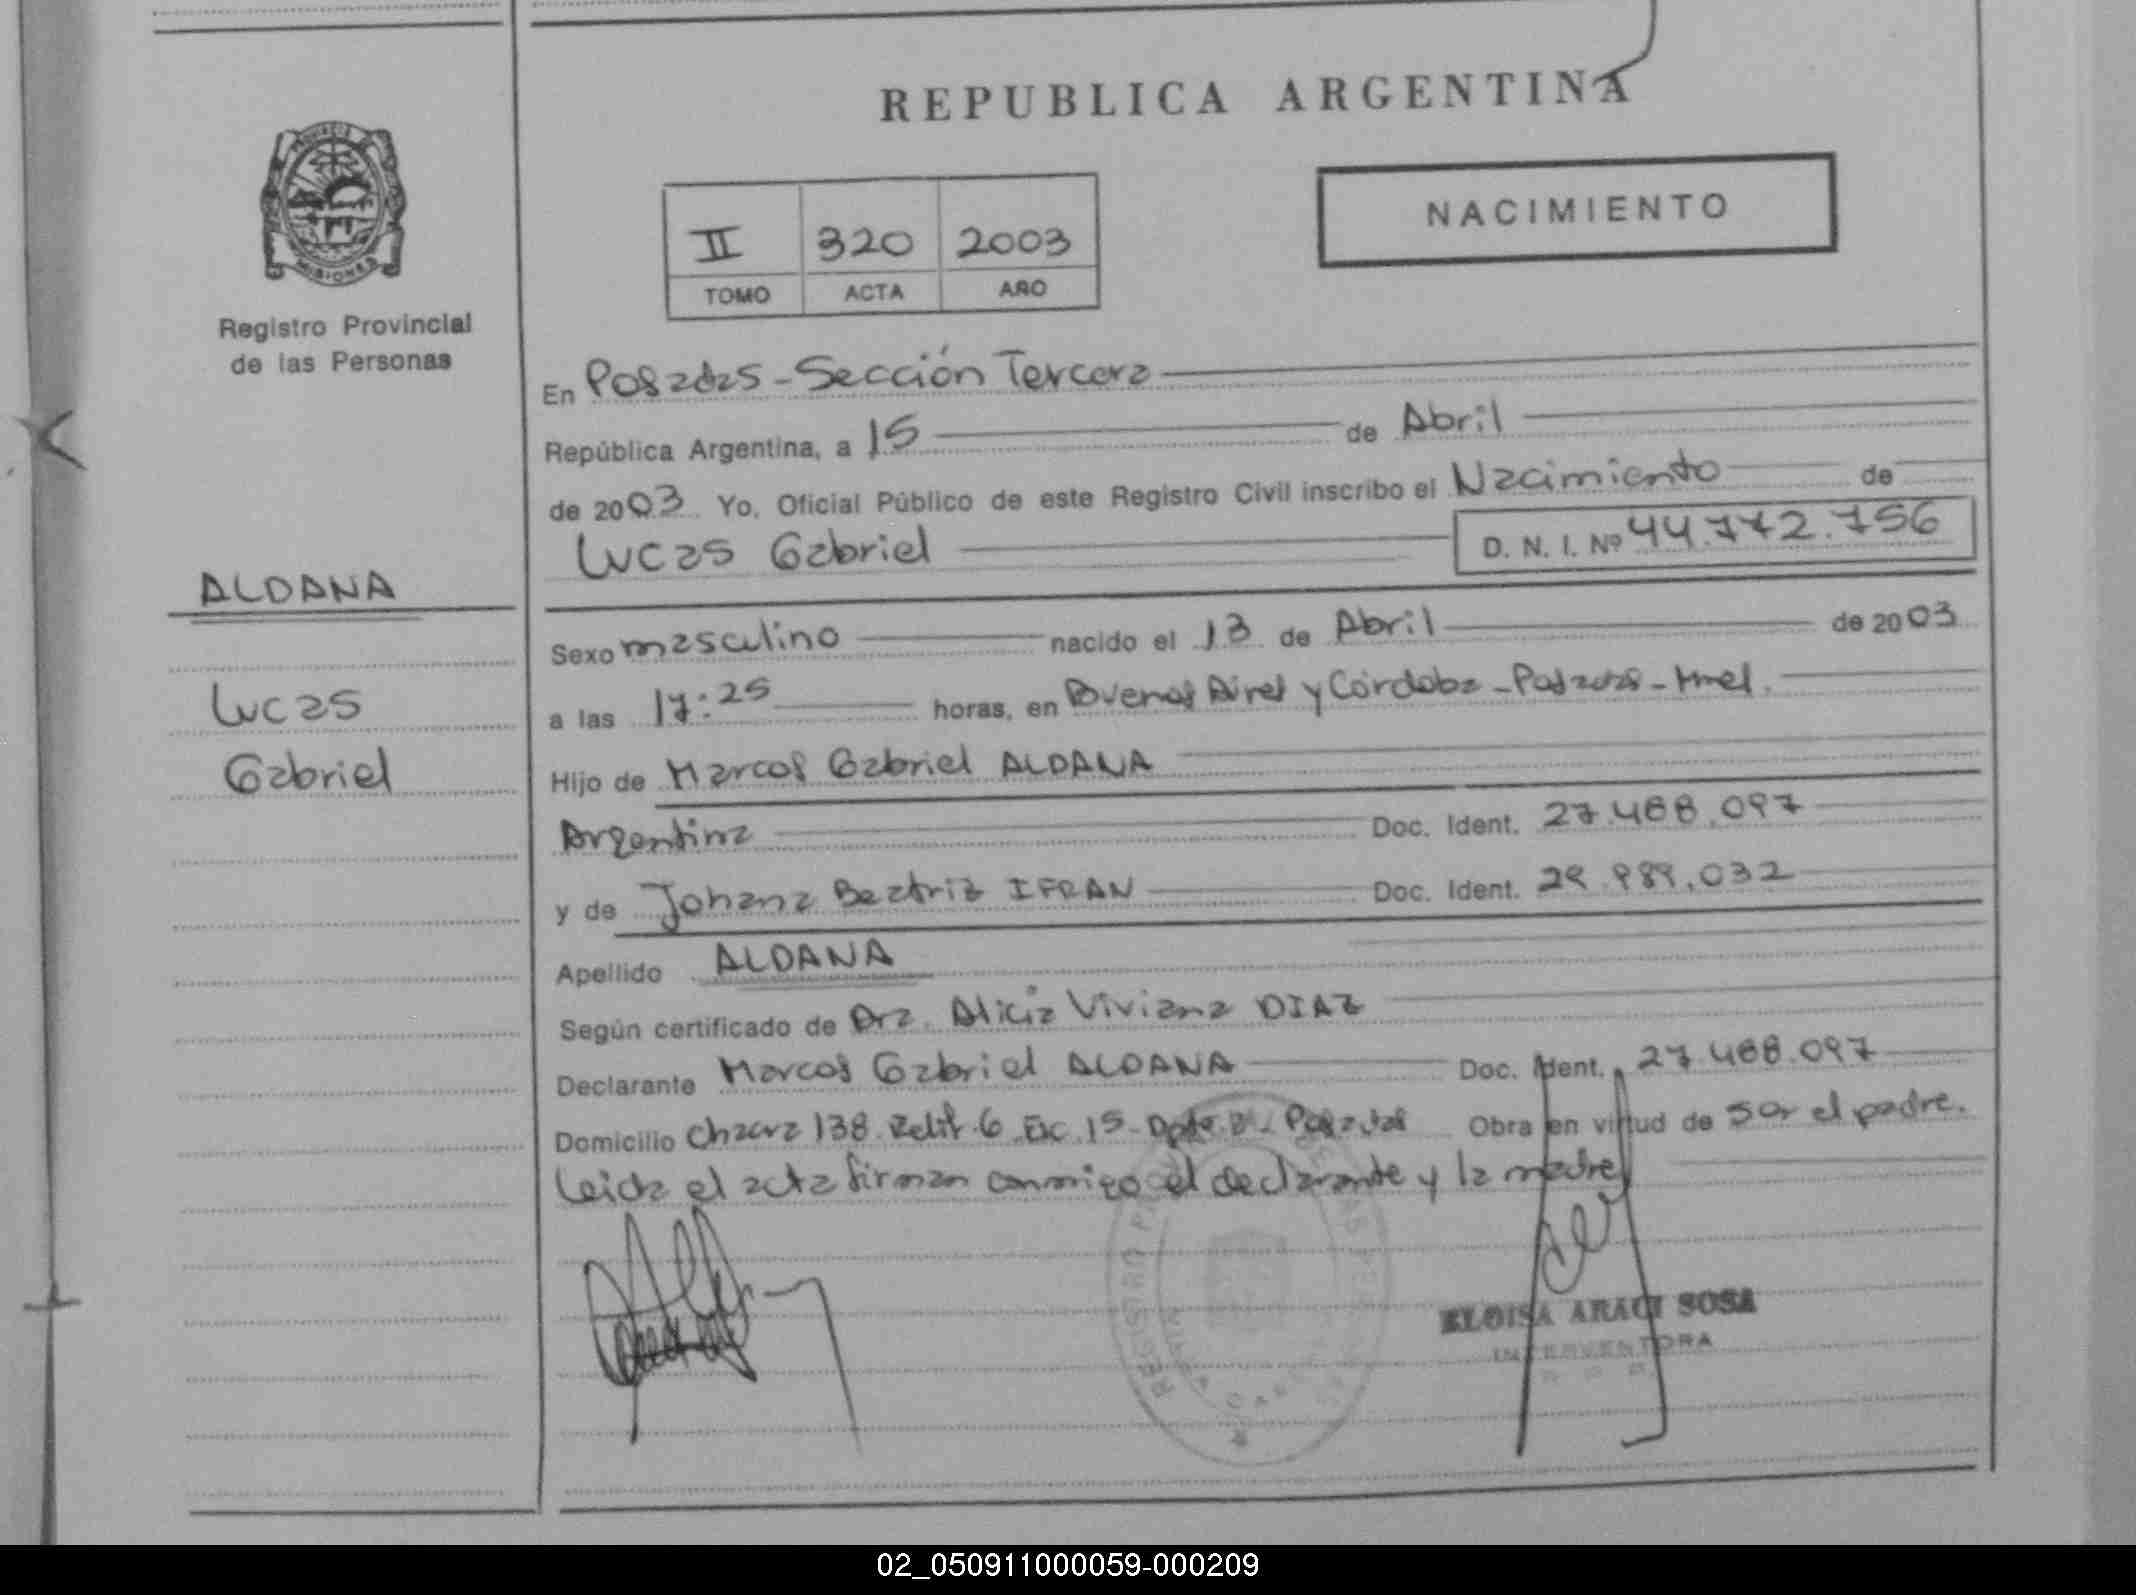 REPUBLICA ARGENTINA
PROVINCIA DE
MISIONES
Registro Provincial
de las Personas
II 320 2003
TOMO ACTA AÑO
NACIMIENTO
En Posadas - Sección Tercera
República Argentina, a 15 de Abril
de 2003 Yo, Oficial Público de este Registro Civil inscribo el Nacimiento de
Lucas Gabriel D. N. I. Nº 44.772.756
ALDANA
Lucas
Gabriel
Sexo masculino nacido el 13 de Abril de 2003
a las 17:25 horas, en Buenos Aires y Córdoba - Posadas - Mnes.
Hijo de Marcos Gabriel ALDANA
Argentina Doc. Ident. 27.488.097
y de Johana Beatriz IFRAN Doc. Ident. 29.989.032
Apellido ALDANA
Según certificado de Dra. Alicia Viviana DIAZ
Declarante Marcos Gabriel ALDANA Doc. Ident. 27.488.097
Domicilio Chacra 138 Edif. 6 Esc. 15 - Dpto. - Posadas Obra en virtud de ser el padre.
Leida el acta firman conmigo el declarante y la madre
ELOISA ARACI SOSA
INTERVENTORA
02_050911000059-000209